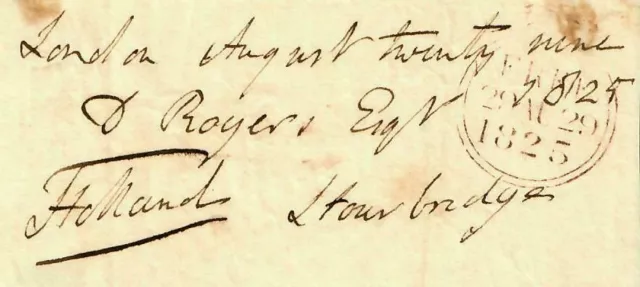 London August twenty nine
1825
D Rogers Esqr
Holland Stourbridge
FREE
29 AU 29
1825